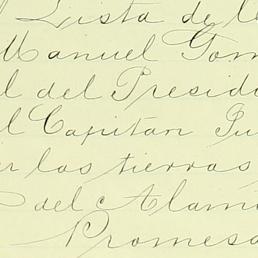 Lista de l
Manuel Gom
l del Presid
l Capitan Ju
er las tierras
del Alam
Promesa